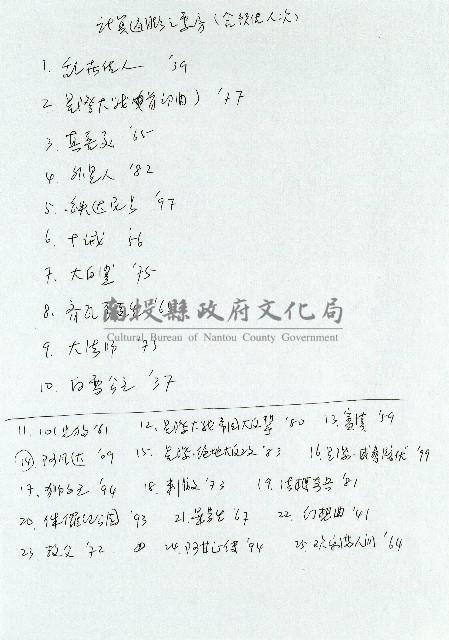 計算通膨之票房(含觀賞人次)
1. 亂世佳人 '39
2 星際大戰(曲) '77
3. 真善美 '65
4. 外星人 '82
5. 鉄达尼号 '97
6. 十诫 '56
7. 大白鯊 '75
8. 齊瓦哥 '65
南投縣政府文化局
Cultural Bureau of Nantou County Government
9. 大法师 '73
10. 白雪公主 '37
11. 101忠狗 '61 12. 星際大戰帝国大反擊 '80 13. 賓漢 '59
14. 阿凡达 '09 15. 星際·絕地大反攻 '83 16. 星際·威脅 '99
17. 狮子王 '94 18. 刺激 '73 19. 法櫃奇兵 '81
20. 侏儸紀公園 '93 21. 畢業生 '67 22. 幻想曲 '41
23 教父 '72 24. 阿甘正傳 '94 25. 歡樂滿人间 '64